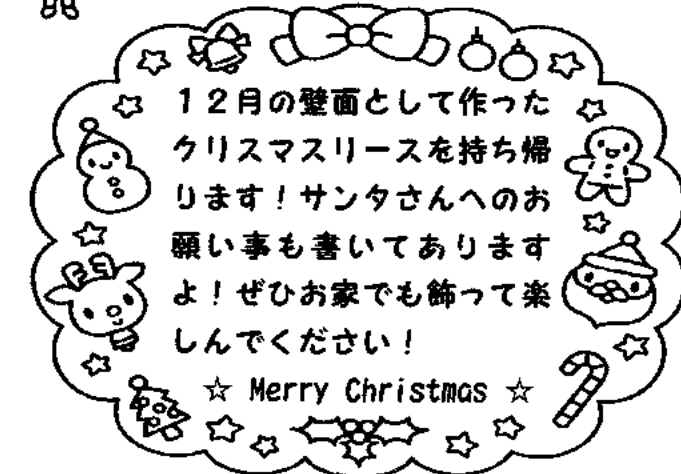 12月の壁面として作った
クリスマスリースを持ち帰
ります!サンタさんへのお
願い事も書いてあります
よ!ぜひお家でも飾って楽
しんでください!
☆ Merry Christmas ☆